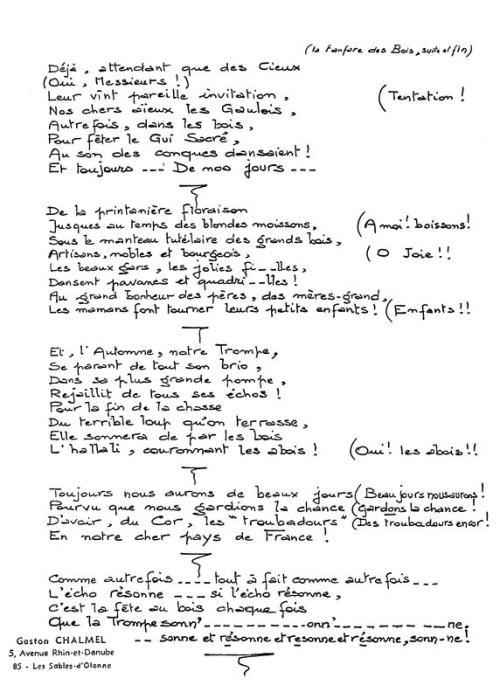 (La Fanfare des Bois, suite et fin)
Déjà, attendant que des Cieux
(Oui, Messieurs!)
Leur vînt pareille invitation, (Tentation!
Nos chers aïeux les Gaulois,
Autrefois, dans les bois,
Pour fêter le Gui Sacré,
Au son des conques dansaient!
Et toujours ---- De nos jours ---
De la printanière floraison
Jusques au temps des blondes moissons, (A moi! boissons!
Sous le manteau tutélaire des grands bois,
Artisans, nobles et bourgeois, (O Joie!!
Les beaux gars, les jolies fi---lles,
Dansent pavanes et quadri--lles!
Au grand bonheur des pères, des mères-grand,
Les mamans font tourner leurs petits enfants! (Enfants!!
Et, l'Automne, notre Trompe,
Se parant de tout son brio,
Dans sa plus grande pompe,
Rejaillit de tous ses échos!
Pour la fin de la chasse
Du terrible loup qu'on terrasse,
Elle sonnera de par les bois
L'hallali, couronnant les abois! (Oui! les abois!!
Toujours nous aurons de beaux jours (Beaux jours nous aurons!
Pourvu que nous gardions la chance (gardons la chance!
D'avoir, du Cor, les "troubadours" (Des troubadours encor!
En notre cher pays de France!
Comme autrefois ---- tout à fait comme autrefois ---
L'écho résonne --- si l'écho résonne,
C'est la fête au bois chaque fois
Que la Trompe sonn'----------onn'----------ne.
-- sonne et résonne et resonne et résonne, sonn-ne!
Gaston CHALMEL
5, Avenue Rhin-et-Danube
85 - Les Sables-d'Olonne